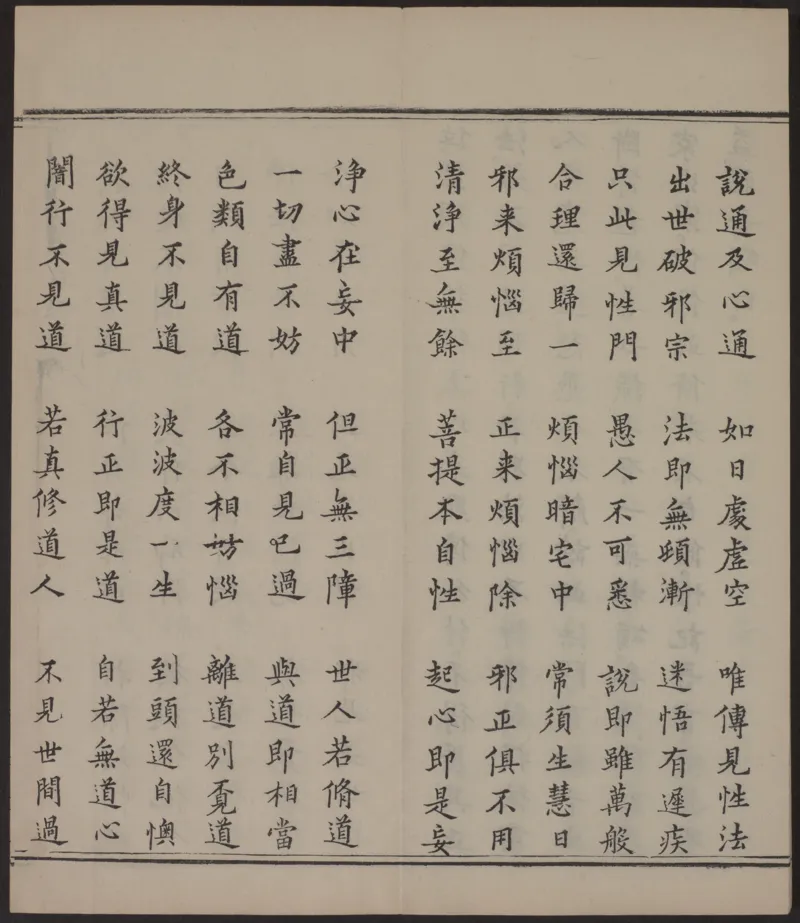 說通及心通 如日處虛空 唯傳見性法
出世破邪宗 法即無頓漸 迷悟有遲疾
只此見性門 愚人不可悉 說即雖萬般
合理還歸一 煩惱暗宅中 常須生慧日
邪来煩惱至 正来煩惱除 邪正俱不用
清淨至無餘 菩提本自性 起心即是妄
淨心在妄中 但正無三障 世人若脩道
一切盡不妨 常自見己過 與道即相當
色類自有道 各不相妨惱 離道別覔道
終身不見道 波波度一生 到頭還自懊
欲得見真道 行正即是道 自若無道心
闇行不見道 若真修道人 不見世間過